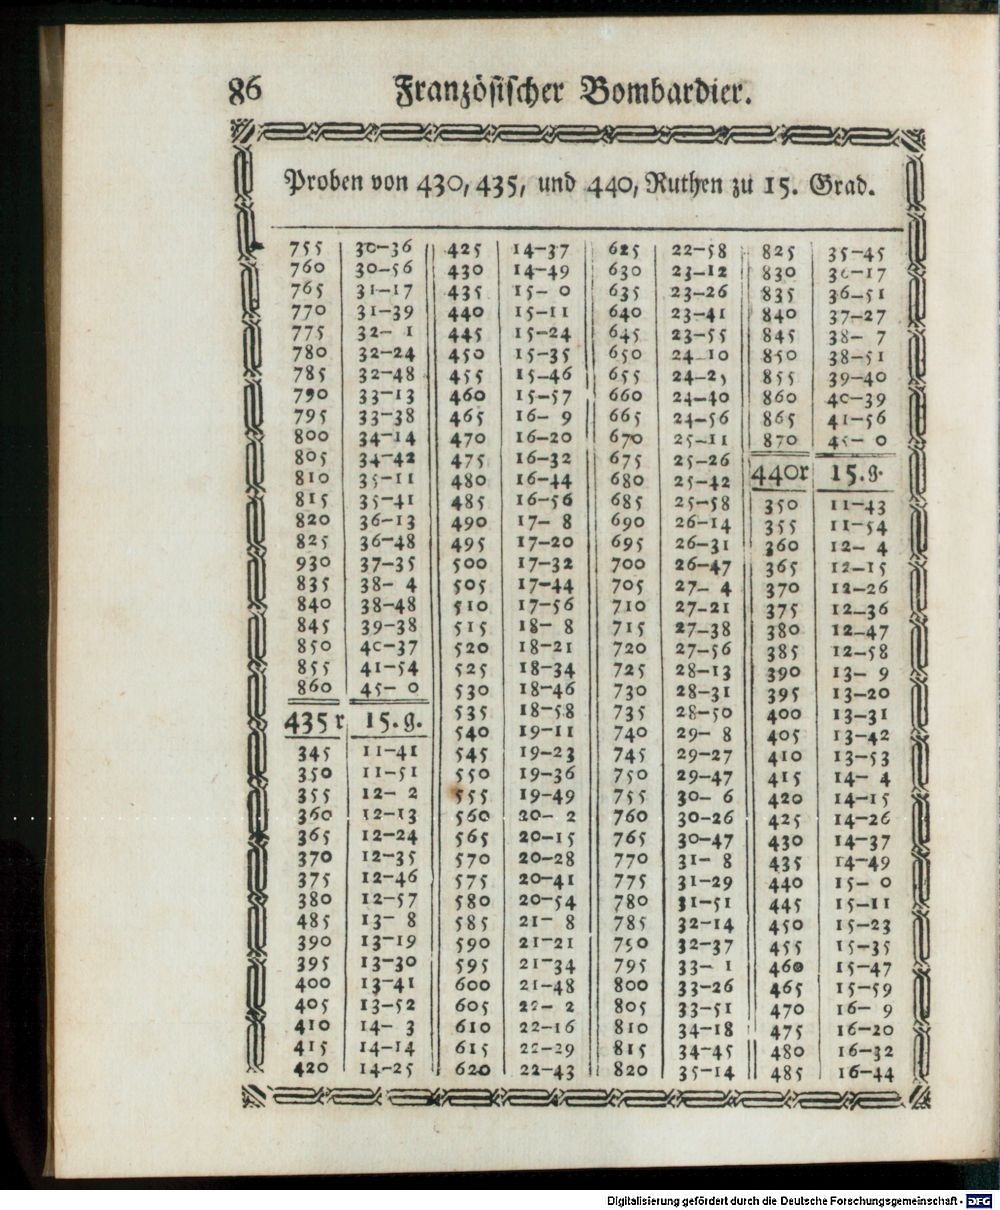 86 Französischer Bombardier.
Proben von 430, 435, und 440, Ruthen zu 15. Grad.
755 30-36
760 30-56
765 31-17
770 31-39
775 32- 1
780 32-24
785 32-48
790 33-13
795 33-38
800 34-14
805 34-42
810 35-11
815 35-41
820 36-13
825 36-48
930 37-35
835 38- 4
840 38-48
845 39-38
850 40-37
855 41-54
860 45- 0
435 r 15. g.
345 11-41
350 11-51
355 12- 2
360 12-13
365 12-24
370 12-35
375 12-46
380 12-57
485 13- 8
390 13-19
395 13-30
400 13-41
405 13-52
410 14- 3
415 14-14
420 14-25
425 14-37
430 14-49
435 15- 0
440 15-11
445 15-24
450 15-35
455 15-46
460 15-57
465 16- 9
470 16-20
475 16-32
480 16-44
485 16-56
490 17- 8
495 17-20
500 17-32
505 17-44
510 17-56
515 18- 8
520 18-21
525 18-34
530 18-46
535 18-58
540 19-11
545 19-23
550 19-36
555 19-49
560 20- 2
565 20-15
570 20-28
575 20-41
580 20-54
585 21- 8
590 21-21
595 21-34
600 21-48
605 22- 2
610 22-16
615 22-29
620 22-43
625 22-58
630 23-12
635 23-26
640 23-41
645 23-55
650 24 10
655 24-25
660 24-40
665 24-56
670 25-11
675 25-26
680 25-42
685 25-58
690 26-14
695 26-31
700 26-47
705 27- 4
710 27-21
715 27-38
720 27-56
725 28-13
730 28-31
735 28-50
740 29- 8
745 29-27
750 29-47
755 30- 6
760 30-26
765 30-47
770 31- 8
775 31-29
780 31-51
785 32-14
750 32-37
795 33- 1
800 33-26
805 33-51
810 34-18
815 34-45
820 35-14
825 35-45
830 36-17
835 36-51
840 37-27
845 38- 7
850 38-51
855 39-40
860 40-39
865 41-56
870 45- 0
440r 15. g.
350 11-43
355 11-54
360 12- 4
365 12-15
370 12-26
375 12-36
380 12-47
385 12-58
390 13- 9
395 13-20
400 13-31
405 13-42
410 13-53
415 14- 4
420 14-15
425 14-26
430 14-37
435 14-49
440 15- 0
445 15-11
450 15-23
455 15-35
460 15-47
465 15-59
470 16- 9
475 16-20
480 16-32
485 16-44
Digitalisierung gefördert durch die Deutsche Forschungsgemeinschaft - DFG